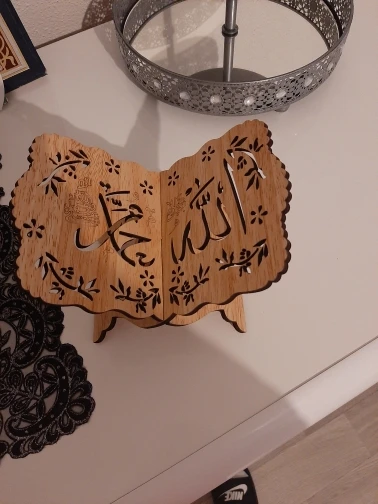 الله
محمد
NIKE